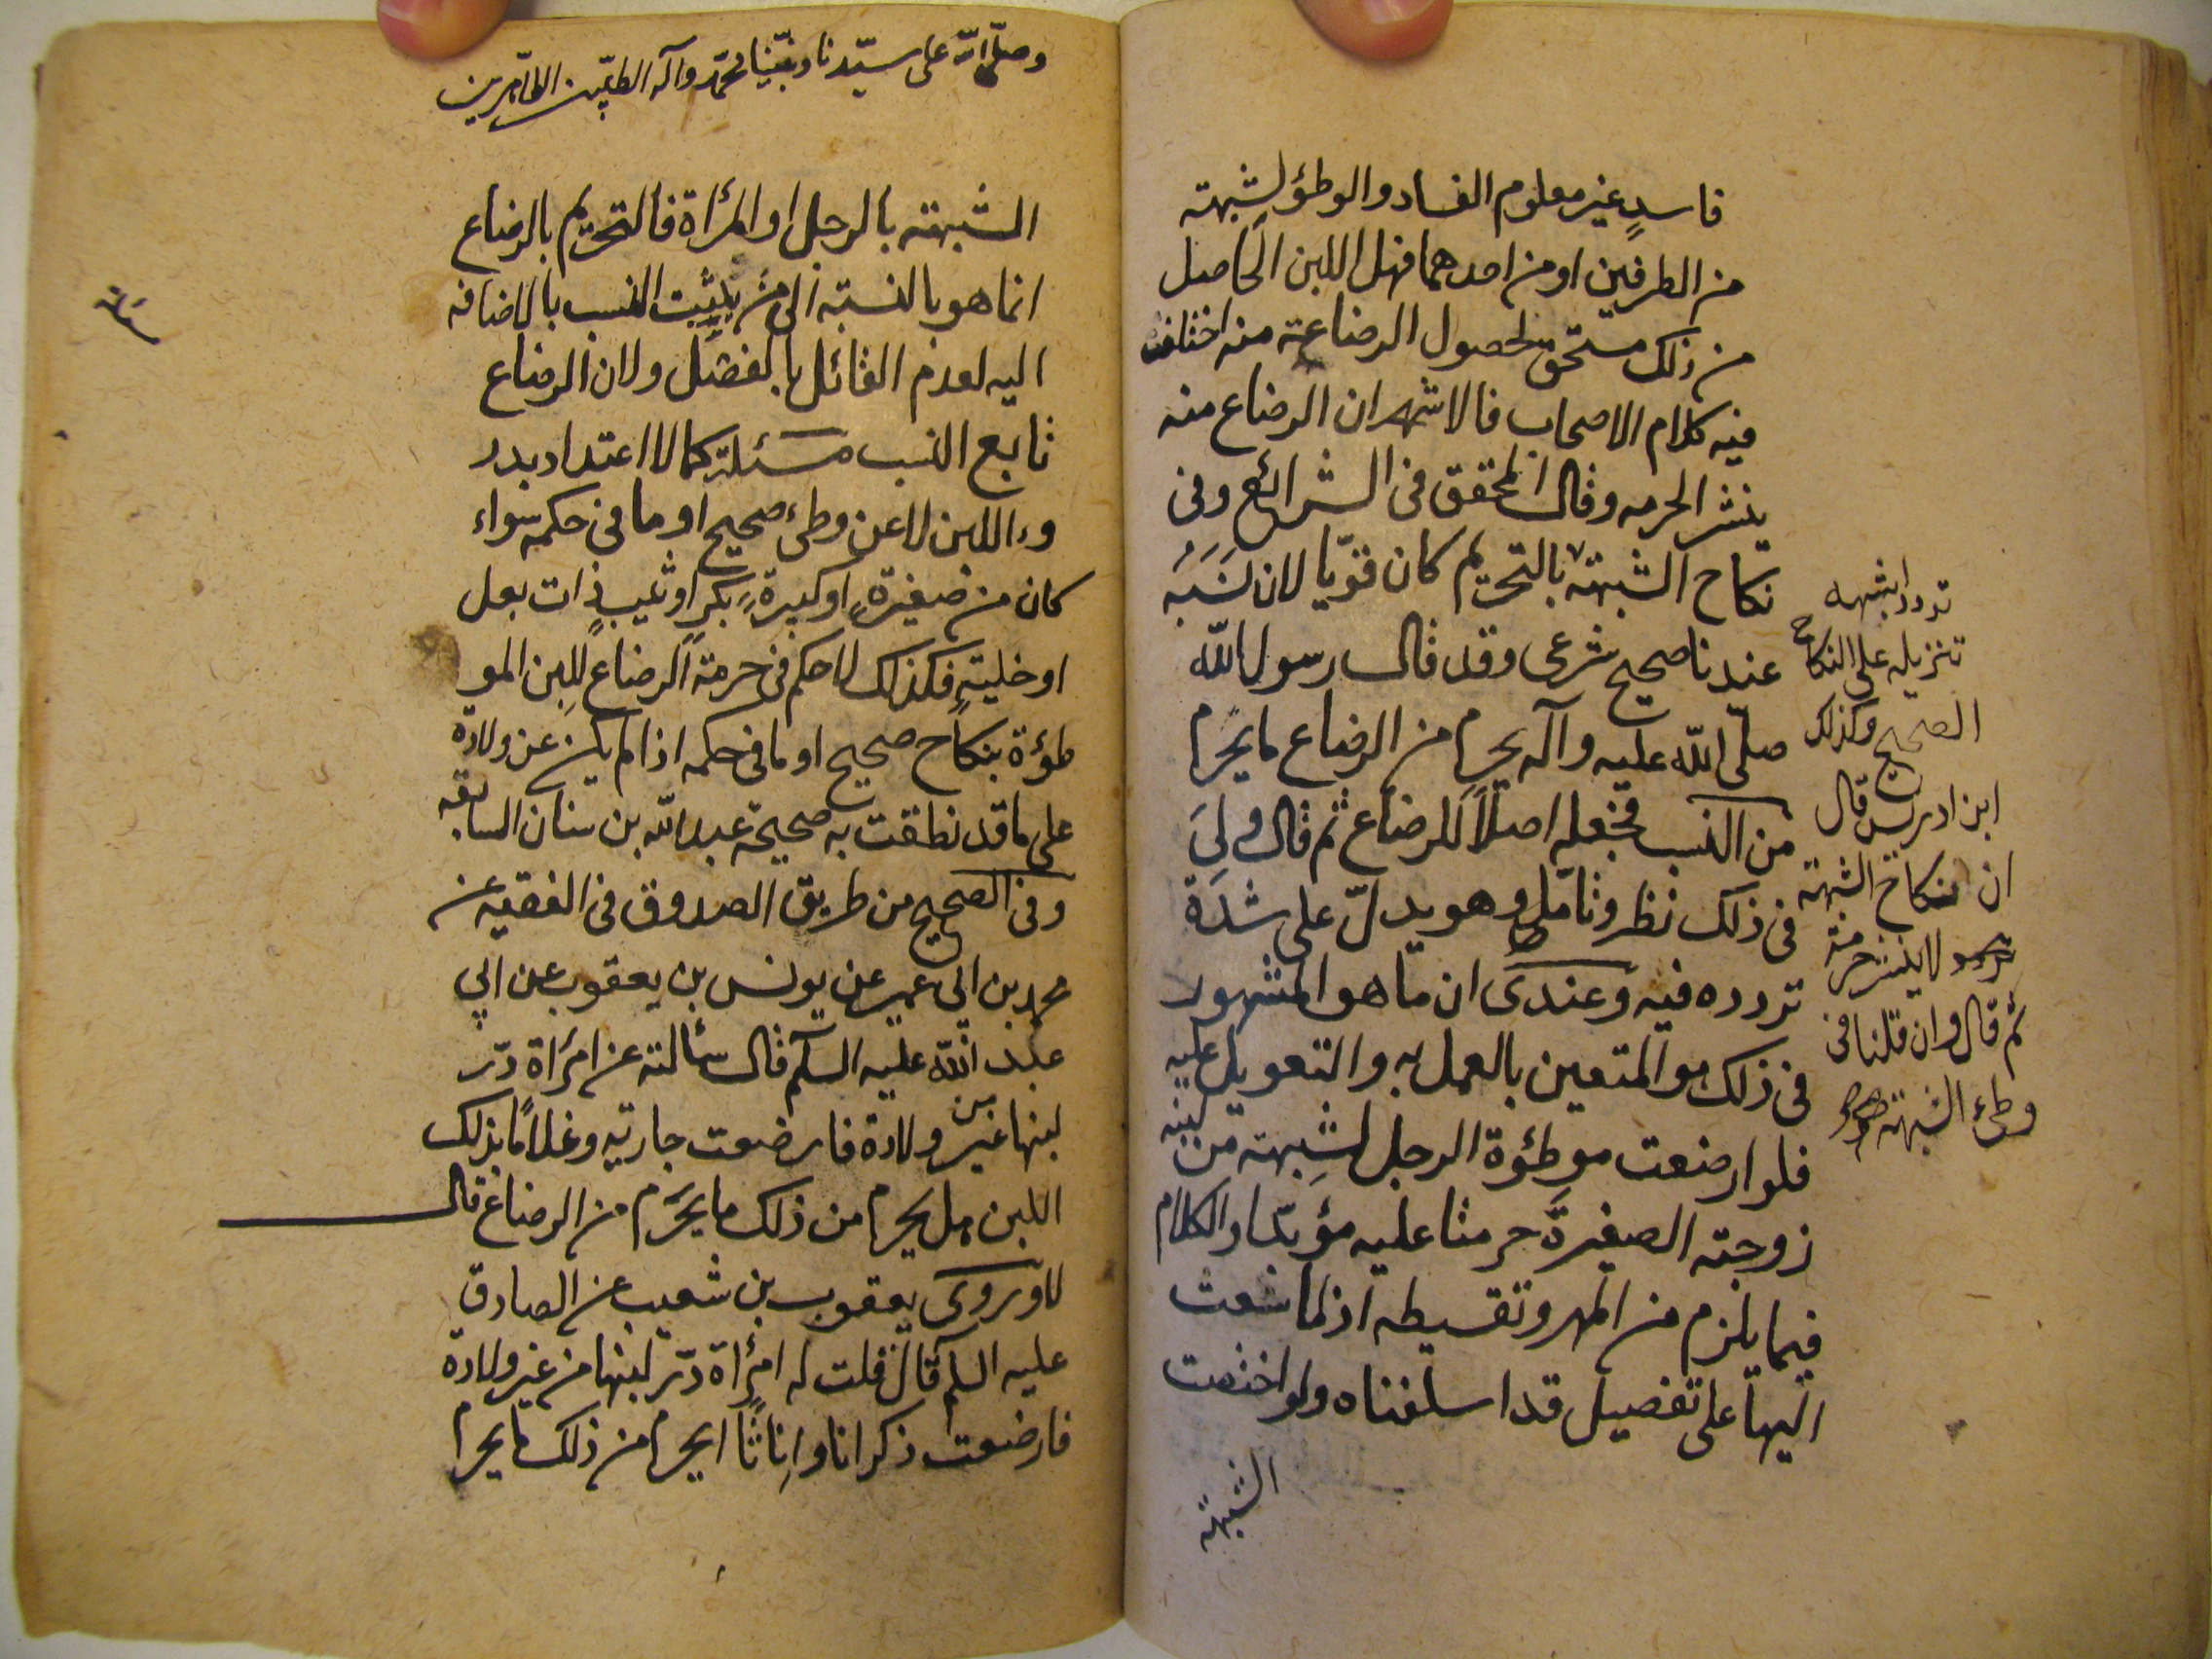 فاسدٍ غير معلوم الفساد والوطؤ لشبهته
من الطرفين او من احدهما فهل اللبن الحاصل
من ذلك مستحق لحصول الرضاعة منه اختلف
فيه كلام الاصحاب فالاشهر ان الرضاع منه
ينشر الحرمه وقال المحقق فى الشرائع وفى
نكاح الشبهة بالتحريم كان قويّا لان نَسَبَه
عندنا صحيح شرعى وقد قال رسول الله
صلّى الله عليه وآله يحرم من الرضاع ما يحرم
من النسب فجعله اصلاً للرضاع ثم قال ولِىَ
فى ذلك نظر وتامّل وهو يدلّ على شدة
تردده فيه وعندى ان ما هو المشهور
فى ذلك هو المتعين بالعمل به والتعويل عليه
فلو ارضعت موطؤة الرجل لشِبهته من لبنه
زوجته الصغيرةَ حرمتا عليه مؤبدّا والكلام
فيما يلزم من المهر وتقسيطه اذا ما سُعت
اليها على تفصيل قد اسلفناه ولو اختصت
الشبهة
تردد اشبهه
تنزيله على النكاح
الصحيح وكذلك
ابن ادريس قال
ان نكاح الشبهة
لا ينشر حرمة
ثم قال وان قلنا فى
وطىء الشبهة
وصلّى الله على سيّدنا ونبيّنا محمّد وآله الطيّبين الطاهرين
الشبهته بالرجل او المرأة فالتحريم بالرضاع
انما هو بالنسبته الى من يثبت النسب بالاضافه
اليه لعدم القائل بالفصل ولان الرضاع
تابع النسب مسئلة كما لا اعتداد بدر
وء اللبن لا عن وطىء صحيح او ما فى حكمه سواء
كان من صغيرةٍ او كبيرةٍ بكر او ثيب ذات بعل
او خليتٍه فكذلك لا حكم فى حرمة الرضاع للبن المو
طؤة بنكاح صحيح او ما فى حكمه اذا لم يكن عن ولادة
على ما قد نطقت به صحيحة عبد الله بن سنان السابقه
وفى الصحيح من طريق الصدوق فى الفقيه عن
محمد بن ابى عمير عن يونس بن يعقوب عن ابي
عبد الله عليه السلم قال سئالته عن امرأة درّ
لبنها من غير ولادة فارضعت جارتيه وغلاماً بذلك
اللبن هل يحرم من ذلك ما يحرَم من الرضاع قال
لا وروى يعقوب بن شعيب عن الصادق
عليه السلم قال قلت له امرأة درّ لبنها من غير ولادة
فارضعت ذكرانا واِناثاً ايحرم من ذلك ما يحرم